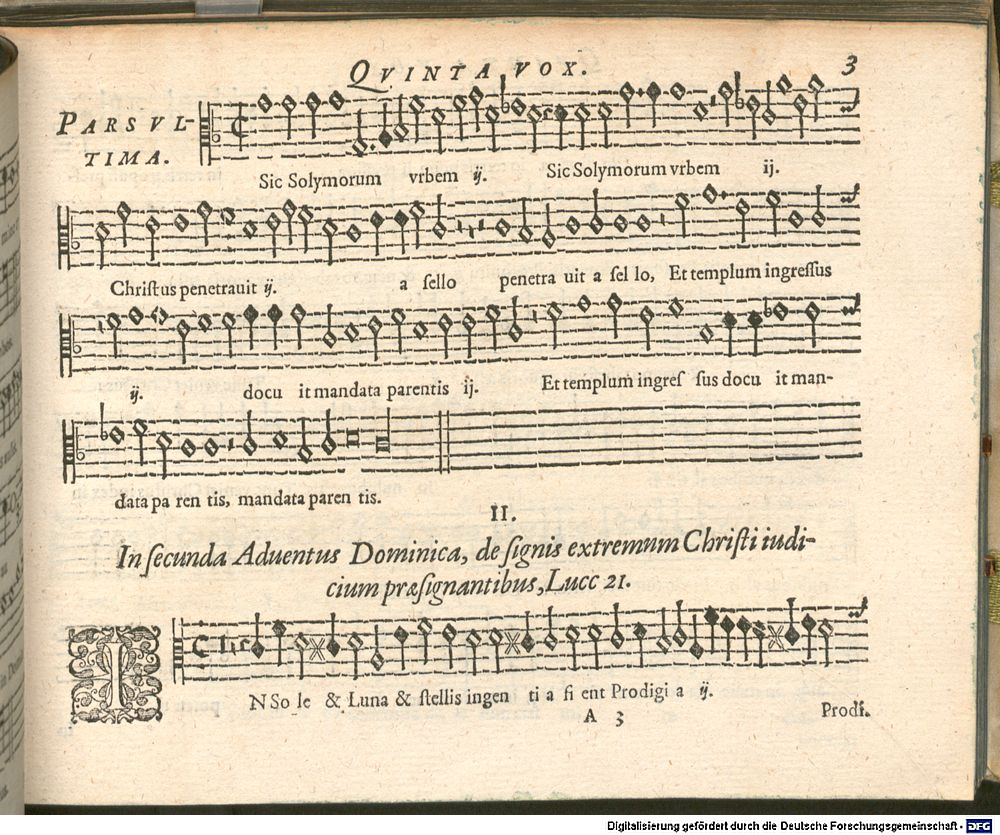 QVINTA VOX. 3
PARS VL-
TIMA.
Sic Solymorum vrbem ij. Sic Solymorum vrbem ij.
Chriſtus penetrauit ij. a ſello penetra uit a ſel lo, Et templum ingreſſus
ij. docu it mandata parentis ij. Et templum ingreſ ſus docu it man-
data pa ren tis, mandata paren tis.
II.
In ſecunda Aduentus Dominica, de ſignis extremum Chriſti iudi-
cium præſignantibus, Lucc 21.
IN So le & Luna & ſtellis ingen ti a ſi ent Prodigi a ij.
A 3 Prodi.
Digitalisierung gefördert durch die Deutsche Forschungsgemeinschaft - DFG